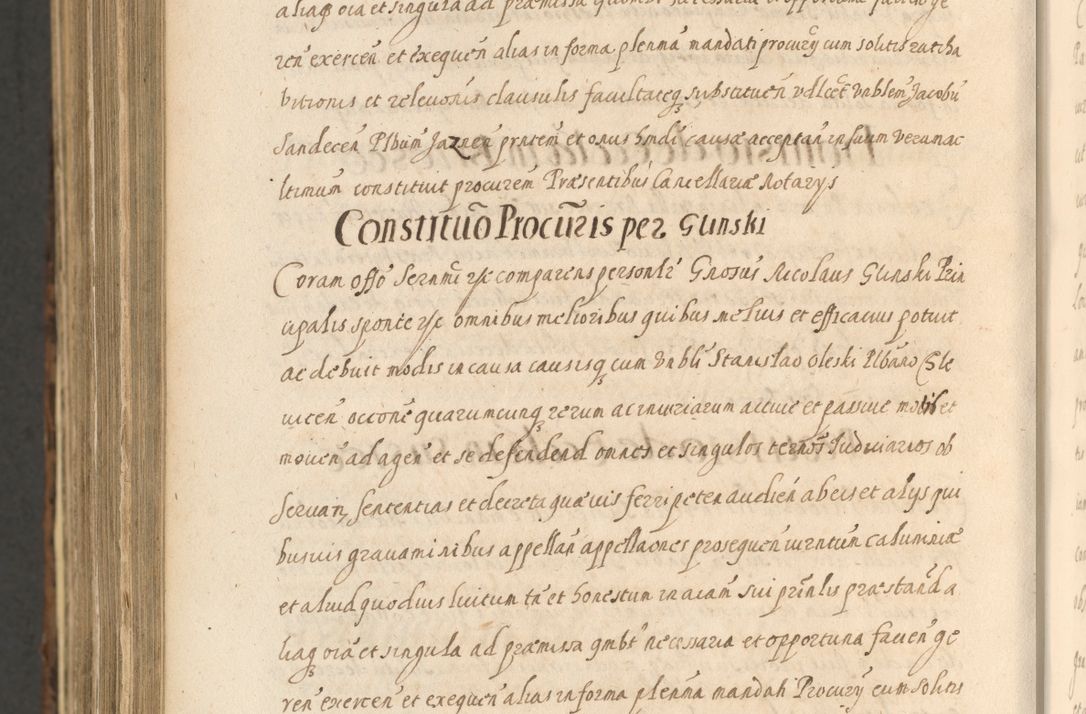 aliaq oia et singula ad præmissa
ren exercen et exequen alias in forma plenma mandati procury cum solitis ratiha
bitionis et relevonis clausulis facultateq substituen vdlcet Vnblem Jacobu
Sandecen Plbum Jaznen prntem et onus hmdi causæ acceptan in suum verum ac
ltimum constituit procurem Præsentibus Cancellariæ Notarys
Constituo Procuris per Glinski
Coram offo Sernmi &c comparens personlr Gnosus Nicolaus Glinski Prin
cipalis sponte &c omnibus melioribus quibus melius et efficacius potuit
ac debuit modis in causa causisq cum Vnbli Stanislao Oleski Plbano Sle
vicen occone quarumcunq rerum ac iniuriarum active et passive motis et
moven ad agen et se defendend omnes et singulos ternos Judiciarios ob
servan, sententias et decreta quævis ferri peten audien ab eis et alys qui
busvis gravaminibus appellan appellaones prosequen iurntum calumniæ
et aliud quodvis licitum tn et honestum in aiam sui prinlis præstand a
liaq oia et singula ad præmissa qmbt necessaria et opportuna facien ge
ren exercen et exequen alias in forma plenma mandati Procury cum solitis